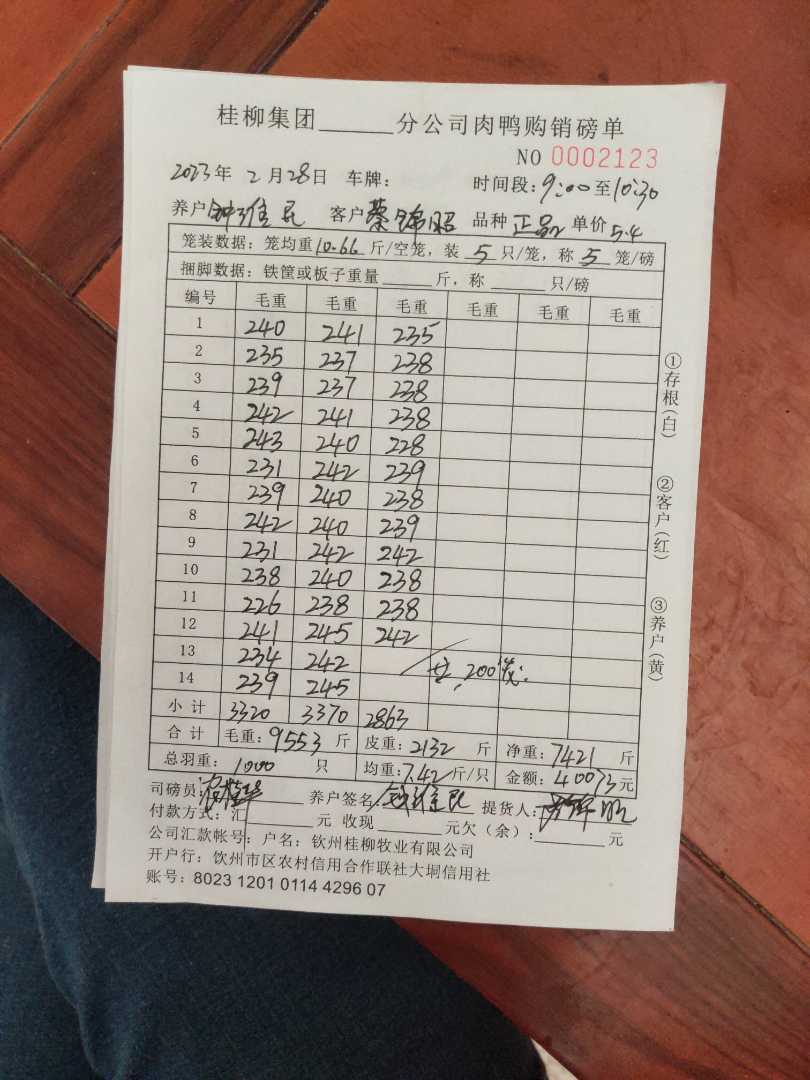 桂柳集团______分公司肉鸭购销磅单
NO 0002123
2023年 2月28日 车牌： 时间段：9:00至10:30
养户钟维民 客户蔡锦昭 品种正品 单价5.4
笼装数据：笼均重10.66斤/空笼，装 5 只/笼，称 5 笼/磅
捆脚数据：铁筐或板子重量______斤，称______只/磅
编号 毛重 毛重 毛重 毛重 毛重 毛重
1 240 241 235
2 235 237 238
3 239 237 238
4 242 241 238
5 243 240 228
6 231 242 239
7 239 240 238
8 242 240 239
9 231 242 242
10 238 240 238
11 226 238 238
12 241 245 242
13 234 242 200
14 239 245
小计 3320 3370 2863
合计 毛重：9553斤 皮重：2132斤 净重：7421斤
总羽重：1000只 均重：7.42斤/只 金额：40073元
司磅员： 养户签名 钟维民 提货人：
付款方式：汇______元 收现______元欠（余）：______元
公司汇款帐号：户名：钦州桂柳牧业有限公司
开户行：钦州市区农村信用合作联社大垌信用社
账号：8023 1201 0114 4296 07
①存根（白）
②客户（红）
③养户（黄）